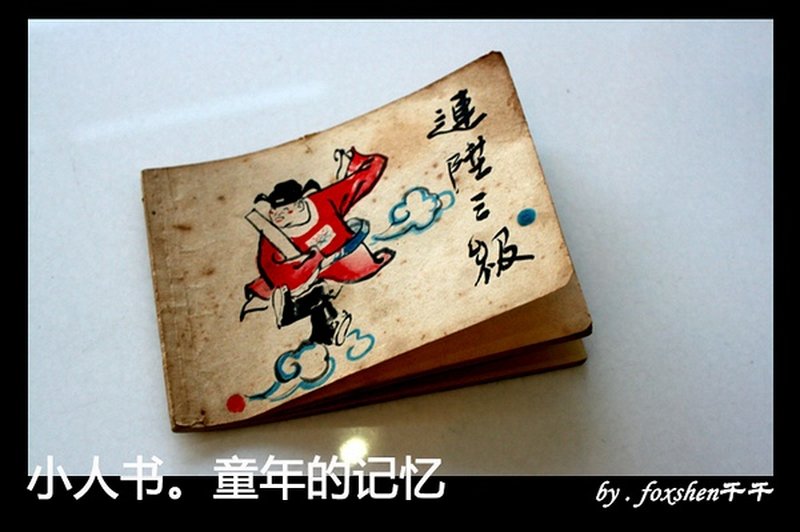 連陞三級
小人书。童年的记忆
by . foxshen千千